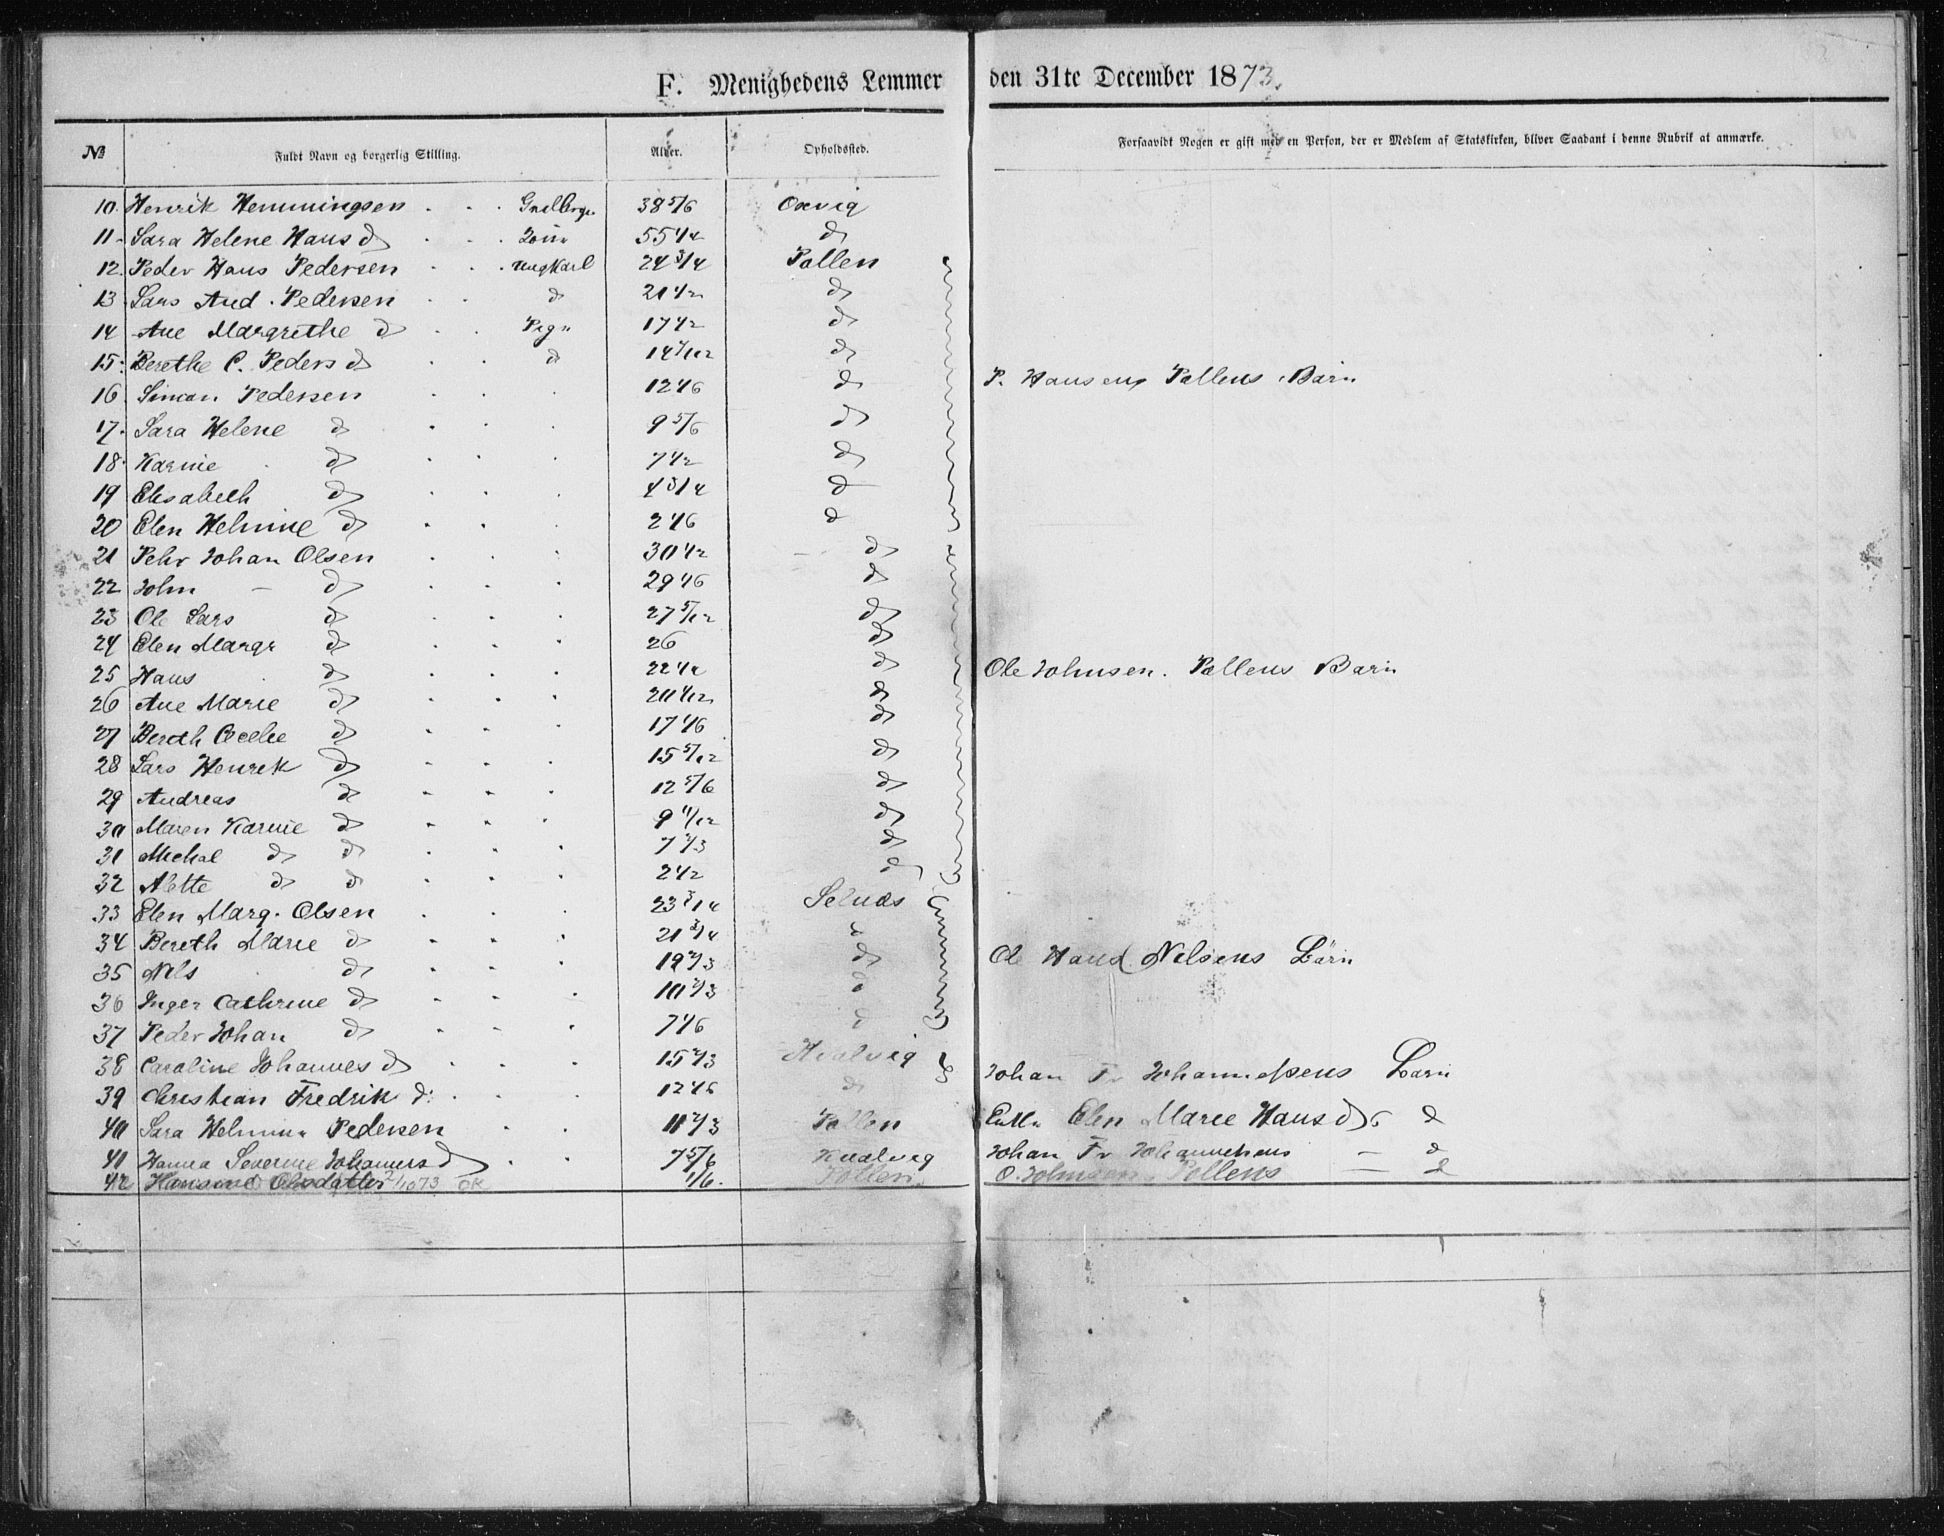 F. Menighedens Lemmer den 31te December 1873.
№ Fuldt Navn og borgerlig Stilling. Alder. Opholdssted. Forsaavidt Nogen er gift med en Person, der er Medlem af Statskirken, bliver Saadant i denne Rubrik at anmærke.
10. Henrik Hemmingsen 38 5/6 Oxvig
11. Sara Helene Hans d 55 1/2 d
12. Peder Hans Pedersen Ungkarl 24 3/4 Pollen
13 Lars And. Pedersen d 21 1/2 d
14 Ane Margrethe d Pige 17 1/2 d
15. Berethe C. Peders d d 14 7/12 d
16 Simon Pedersen 12 1/6 d P. Hansens Pollens Barn
17. Sara Helene d 9 5/6 d
18. Karine d 7 1/2 d
19 Elisabeth d 4 3/4 d
20 Elen Helmine d 2 1/6 d
21 Pehr Johan Olsen 30 1/2 d
22 John — d 29 1/6 d
23 Ole Lars d 27 5/12 d
24 Elen Margr d 26 d
25 Hans d 22 1/2 d Ole Johnsen. Pollens Barn
26 Ane Marie d 20 1/12 d
27 Bereth Cecelie d 17 1/6 d
28 Lars Henrik d 15 5/12 d
29 Andreas d 12 5/6 d
30 Maren Karine d 9 11/12 d
31 Michal d d 7 1/3 d
32 Alette d d 2 1/2 d
33 Elen Marg. Olsen 23 3/4 Selnæs
34 Bereth Marie d 21 3/4 d
35 Nils d 19 2/3 d Ole Hans Nilsens Börn
36 Inger Cathrine d 10 2/3 d
37 Peder Johan d 7 1/6 d
38 Caroline Johannes d 15 2/3 Hvalvig Johan Fr Johannesens Barn
39 Christian Fredrik d. 12 1/6 d
40 Sara Helmina Pedersen 11 2/3 Pollen Enke Elen Marie Hans d d
41 Hanna Severine Johannes d 7 5/6 Kvalvig Johan Fr Johannesens — d
42 Hansine Olsdatter 2/10 73 OK 1/6. Pollen O. Johnsen Pollens — d